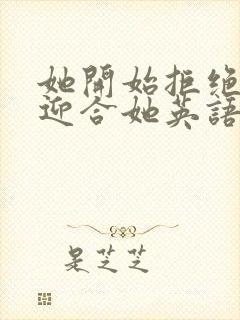 她開始拒絕
迎合她英語
是芝芝